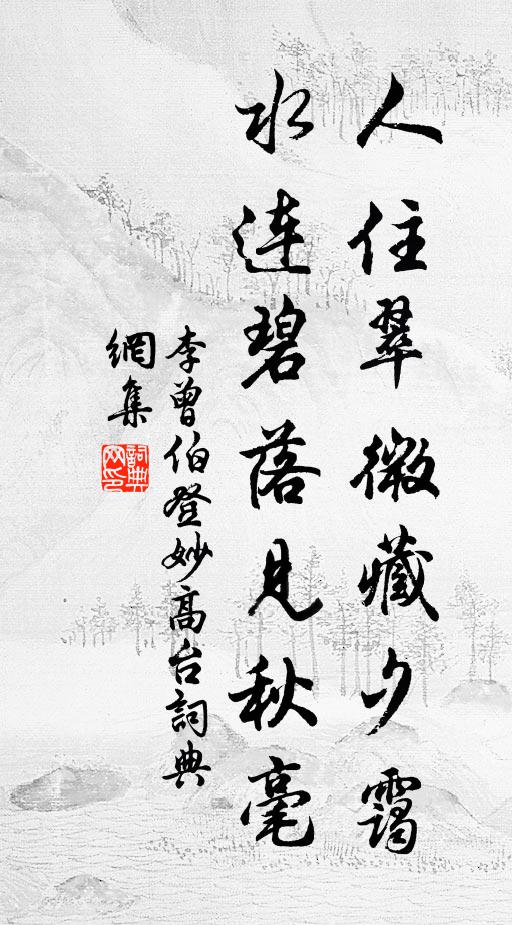 人住翠微藏夕霭
水连碧落见秋毫
李曾伯登妙高台詞典
網集
詞典
网印